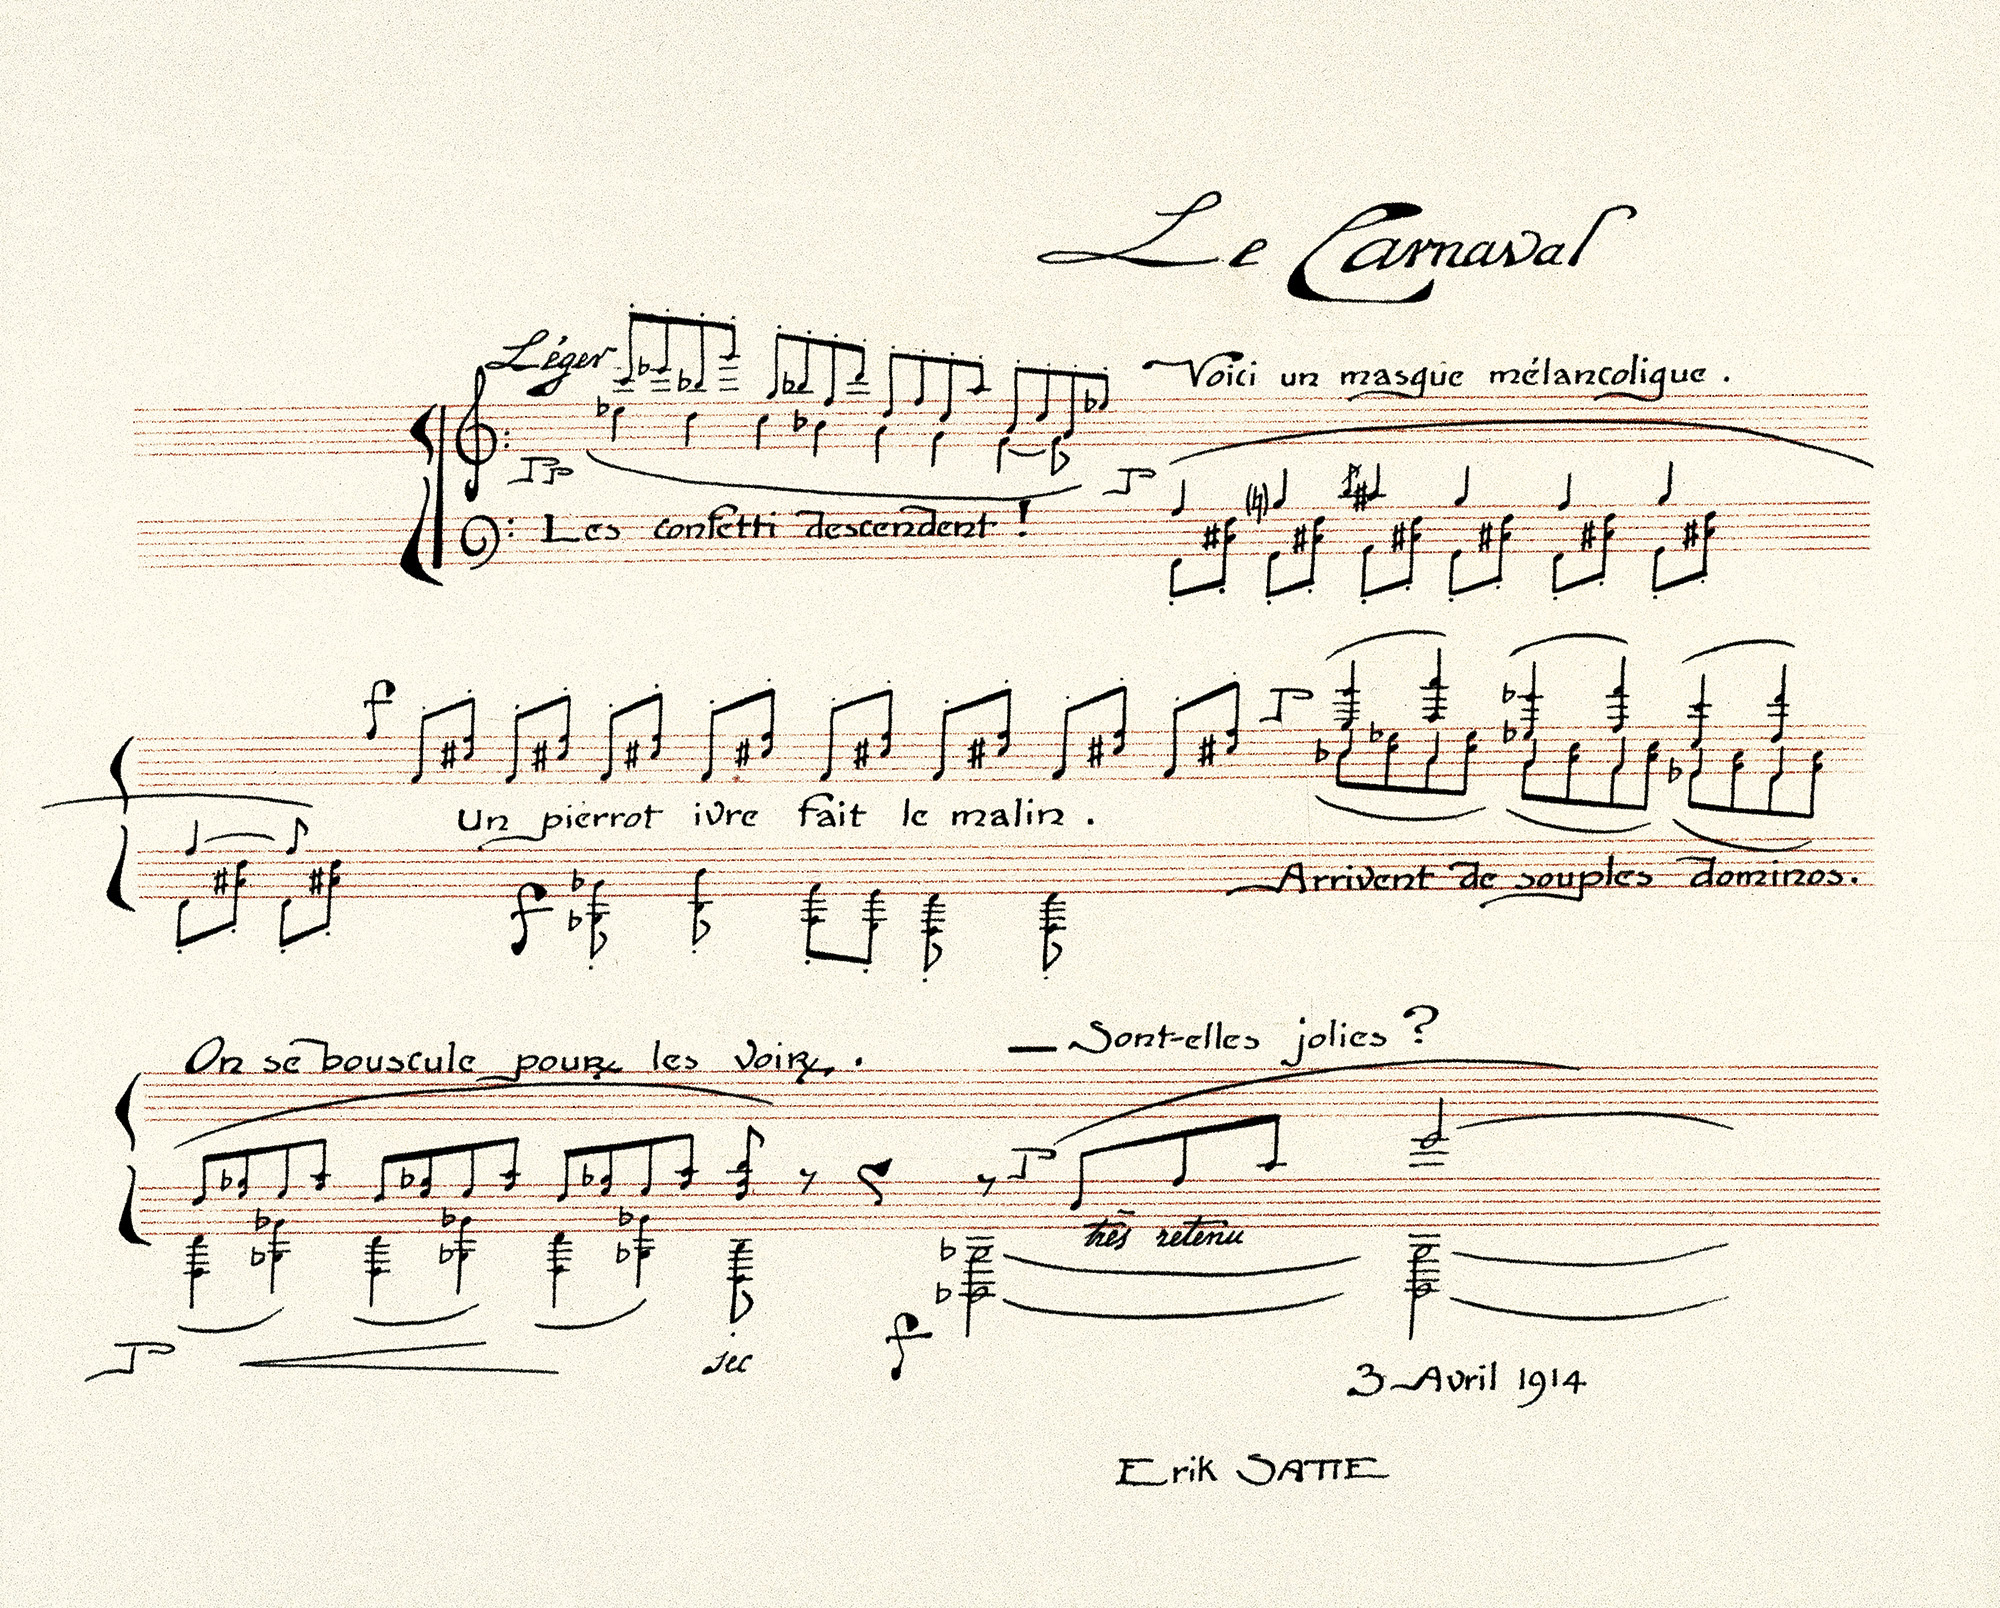 Le Carnaval
Léger
Voici un masque mélancolique.
pp
p
Les confetti descendent!
f
p
Un pierrot ivre fait le malin.
f
Arrivent de souples dominos.
On se bouscule pour les voir.
— Sont-elles jolies?
p
très retenu
p
sec
f
3 Avril 1914
Erik SATIE